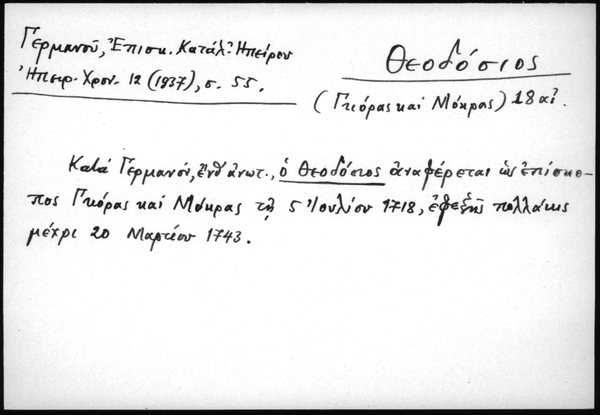 Γερμανοῦ, Ἐπισκ. Κατάλ. Ἠπείρου
Ἠπειρ. Χρον. 12 (1937), σ. 55.
Θεοδόσιος
(Γκόρας καὶ Μόκρας) 18 αἰ.
Κατὰ Γερμανόν, ἔνθ' ἀνωτ., ὁ Θεοδόσιος ἀναφέρεται ὡς ἐπίσκο-
πος Γκόρας καὶ Μόκρας τῇ 5 Ἰουλίου 1718, ἐφεξῆς πολλάκις
μέχρι 20 Μαρτίου 1743.